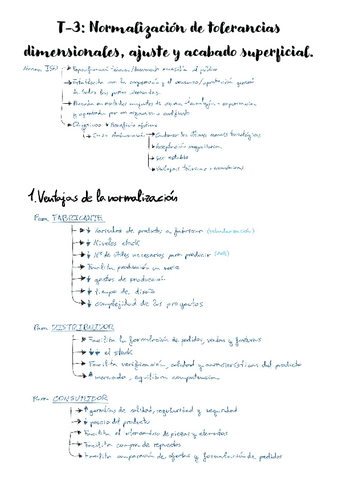 T-3: Normalización de tolerancias
dimensionales, ajuste y acabado superficial.
Norma ISO → Especificaciones técnicas/documento accesible al público
→ Establecida con la cooperación y el consenso/aprobación general
de todas las partes interesadas.
→ Basada en resultados conjuntos de ciencia, tecnología y experiencia
y aprobada por un organismo cualificado
→ Objetivos → Beneficio óptimo
→ Contener los últimos avances tecnológicos
→ Aceptación mayoritaria
→ Ser estable
→ Ventajas técnicas y económicas
1. Ventajas de la normalización
Para FABRICANTE
→ ↓ Variedades de productos a fabricar
→ ↓ Niveles stock
→ ↓ Nº de útiles necesarios para producir
→ Facilita producción en serie
→ ↓ gastos de producción
→ ↓ tiempo de diseño
→ ↓ complejidad de los proyectos
Para DISTRIBUIDOR
→ Facilita la formulación de pedidos, ventas y facturas
→ ↓↓ el stock
→ Facilita verificación, calidad y características del producto
→ ↑ mercado, equilibra competencia
Para CONSUMIDOR
→ ↑ garantías de calidad, regularidad y seguridad
→ ↓ precio del producto
→ Facilita el intercambio de piezas y elementos
→ Facilita compra de repuestos
→ Facilita comparación de ofertas y formulación de pedidos